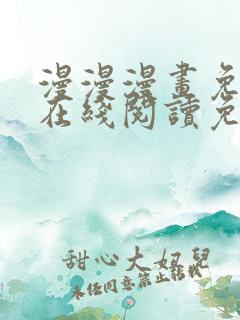 漫漫漫畫免
在綫閱讀免
甜心大妞兒
未经同意禁止轉載